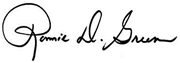 Ronnie D. Green